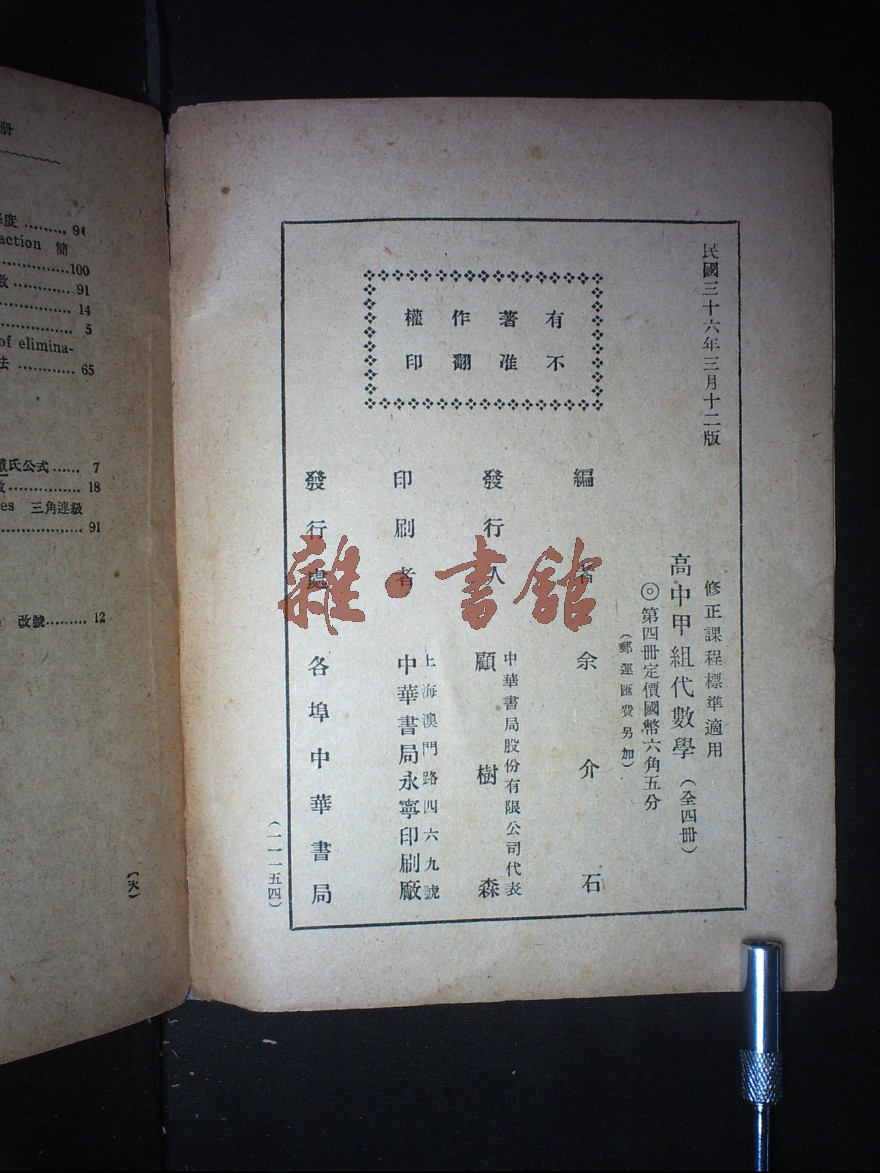 民國三十六年三月十二版
修正課程標準適用
高中甲組代數學（全四冊）
◎第四冊定價國幣六角五分
（郵運匯費另加）
有著作權
不准翻印
編者 余介石
發行人 中華書局股份有限公司代表
顧樹森
印刷者 上海澳門路四六九號
中華書局永寧印刷廠
發行處 各埠中華書局
（一一一五四）
雜·書館
冊
度 ......... 94
action 簡
..................100
數 ............ 91
.................. 14
.................. 5
of elimina-
法 ............ 65
氏公式...... 7
............... 18
es 三角連級
.................. 91
改號......... 12